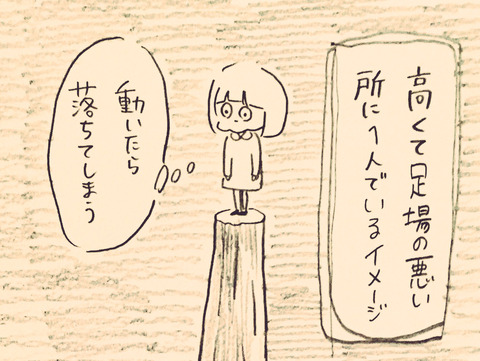 高くて足場の悪い
所に1人でいるイメージ
動いたら
落ちてしまう